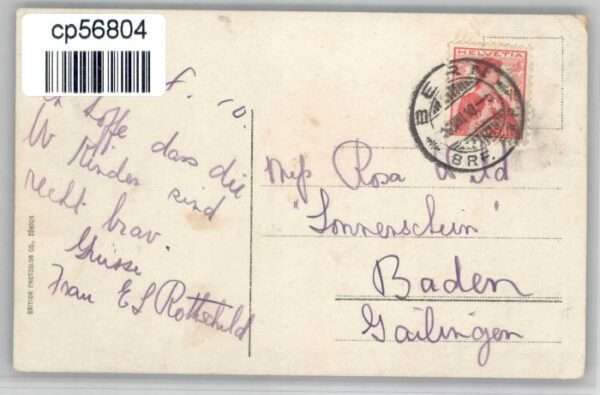 cp56804
10.
hoffe dass die
Kinder sind
recht brav.
Grüsse
Frau E L Rothschild
BRITISH PHOTOGLOM CO., ZÜRICH
HELVETIA
BERN
BRF.
Miss Rosa Wild
"Sonnenschein"
Baden
Gailingen